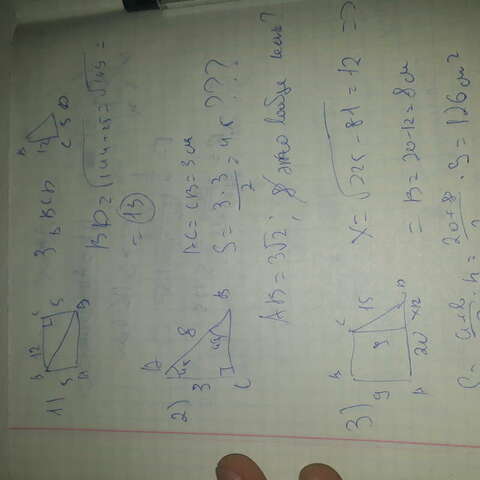 1) B 12 C
5 5
A D
3 △ BCD
B
12
C 5 D
BD = √144+25 = √169 =
= 13
2) A
45
3 8
45
C B
AC = CB = 3 см
S = 3·3/2 = 4.5 ???
AB = 3√2; 8 это вообще как?
3) B C
9 9 15
A 20 x12 D
X = √225-81 = 12 =>
= B = 20-12 = 8 см
S = a+b/2 · h = 20+8/2 · 9 = 126 см²